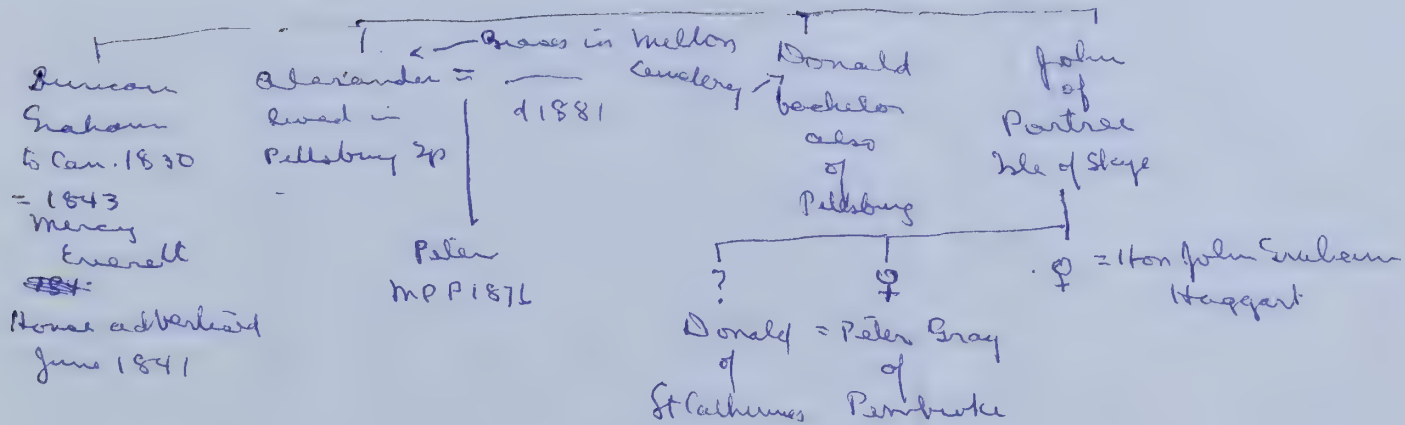 Duncan
Graham
to Can. 1830
= 1843
Mercy
Everett
House advertised
June 1841
Alexander =
lived in
Pittsburg Tp
Graves in Milton
Cemetery
d 1881
Peter
MPP 1871
Donald
bachelor
also
of
Pittsburg
John
of
Portree
Isle of Skye
?
Donald
of
St Catherines
♀
= Peter Gray
of
Pembroke
♀ = Hon John Graham
Haggart